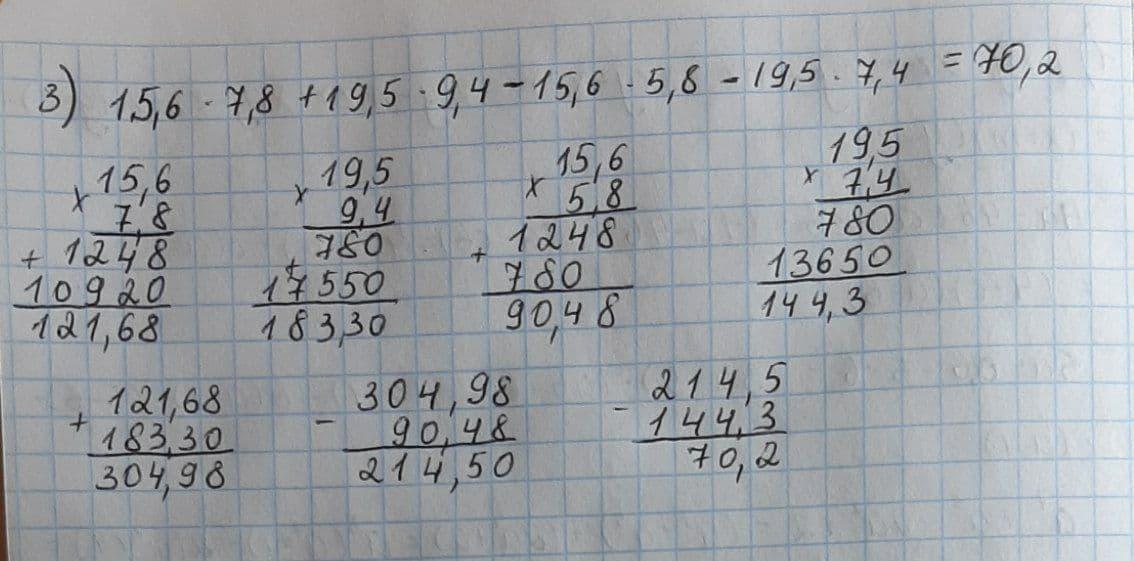 3) 15,6 · 7,8 + 19,5 · 9,4 - 15,6 · 5,8 - 19,5 · 7,4 = 70,2
x 15,6
7,8
+ 1248
10920
121,68
x 19,5
9,4
+ 780
17550
183,30
x 15,6
5,8
+ 1248
780
90,48
x 19,5
7,4
780
13650
144,3
+ 121,68
183,30
304,98
- 304,98
90,48
214,50
- 214,5
144,3
70,2